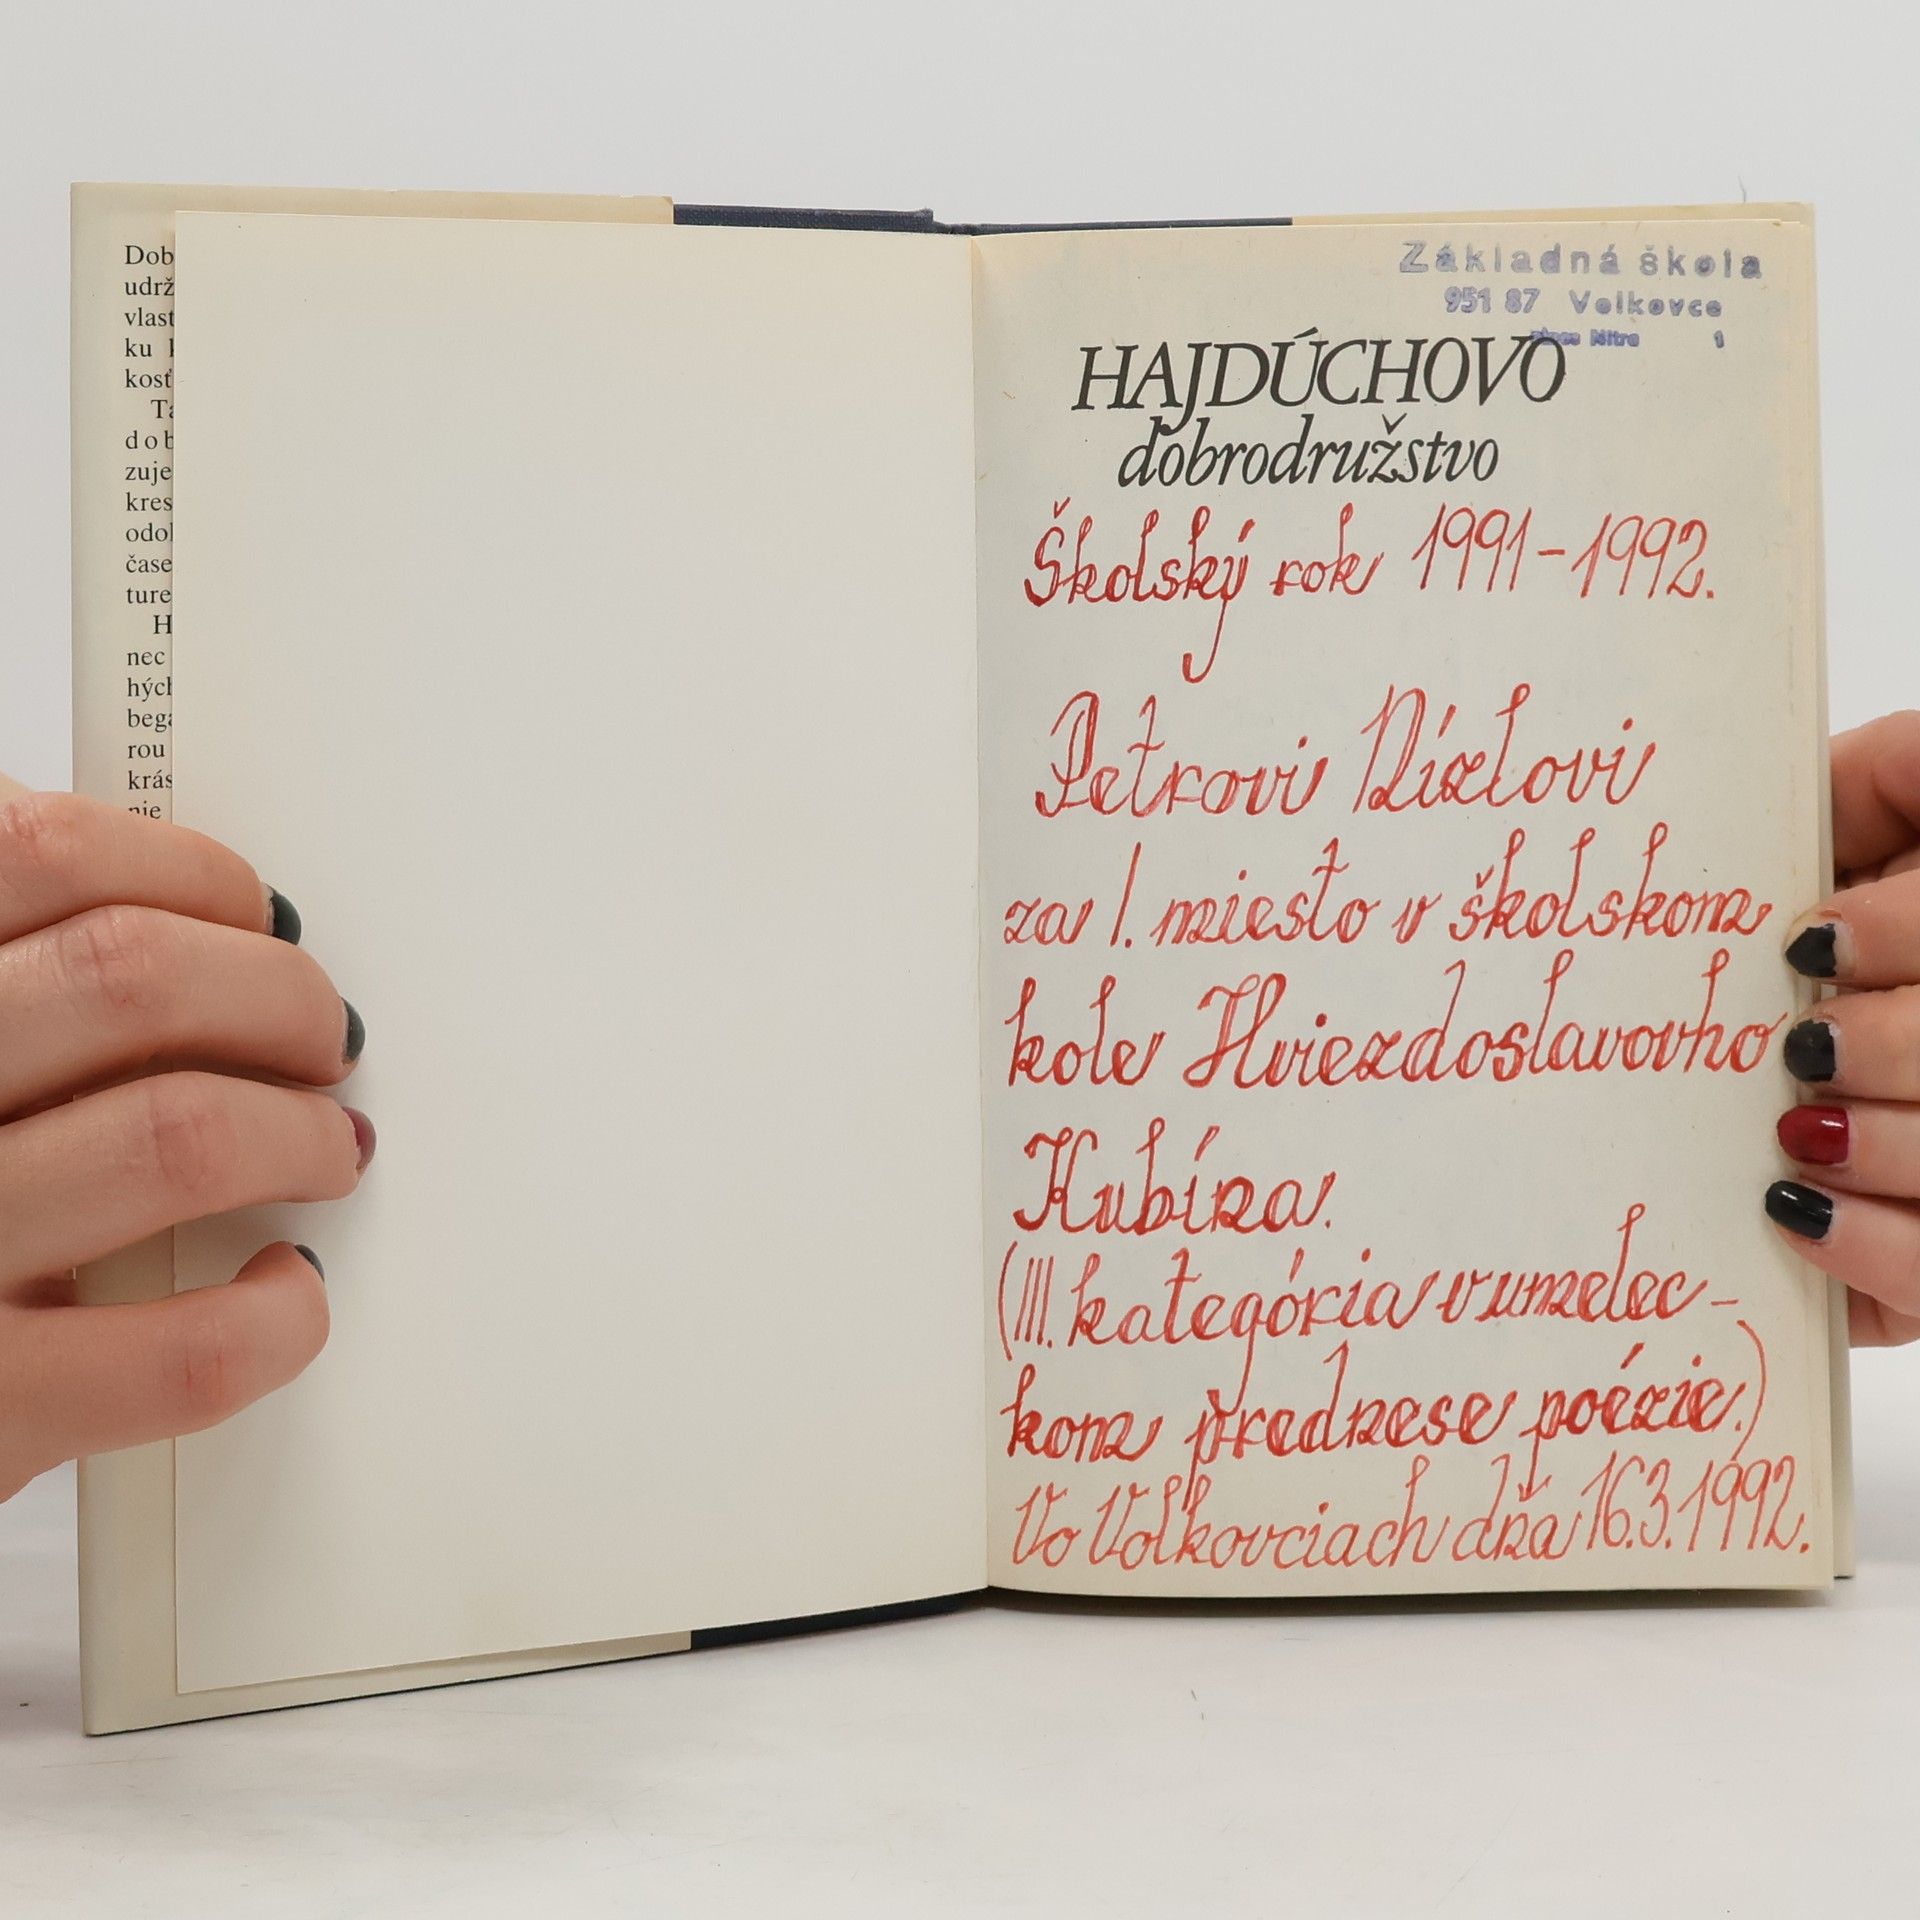 Dob
udrž
vlast
ku
kosť
Ta
dob
zuje
kres
odol
čase
ture
H
nec
hých
bega
rou
krás
nie
Základná škola
951 87 Volkovce
okres Nitra 1
HAJDÚCHOVO
dobrodružstvo
Školský rok 1991-1992.
Petrovi Nízlovi
za I. miesto v školskom
kole Hviezdoslavovho
Kubína.
(III. kategória v umelec-
kom prednese poézie.)
Vo Volkovciach dňa 16.3.1992.